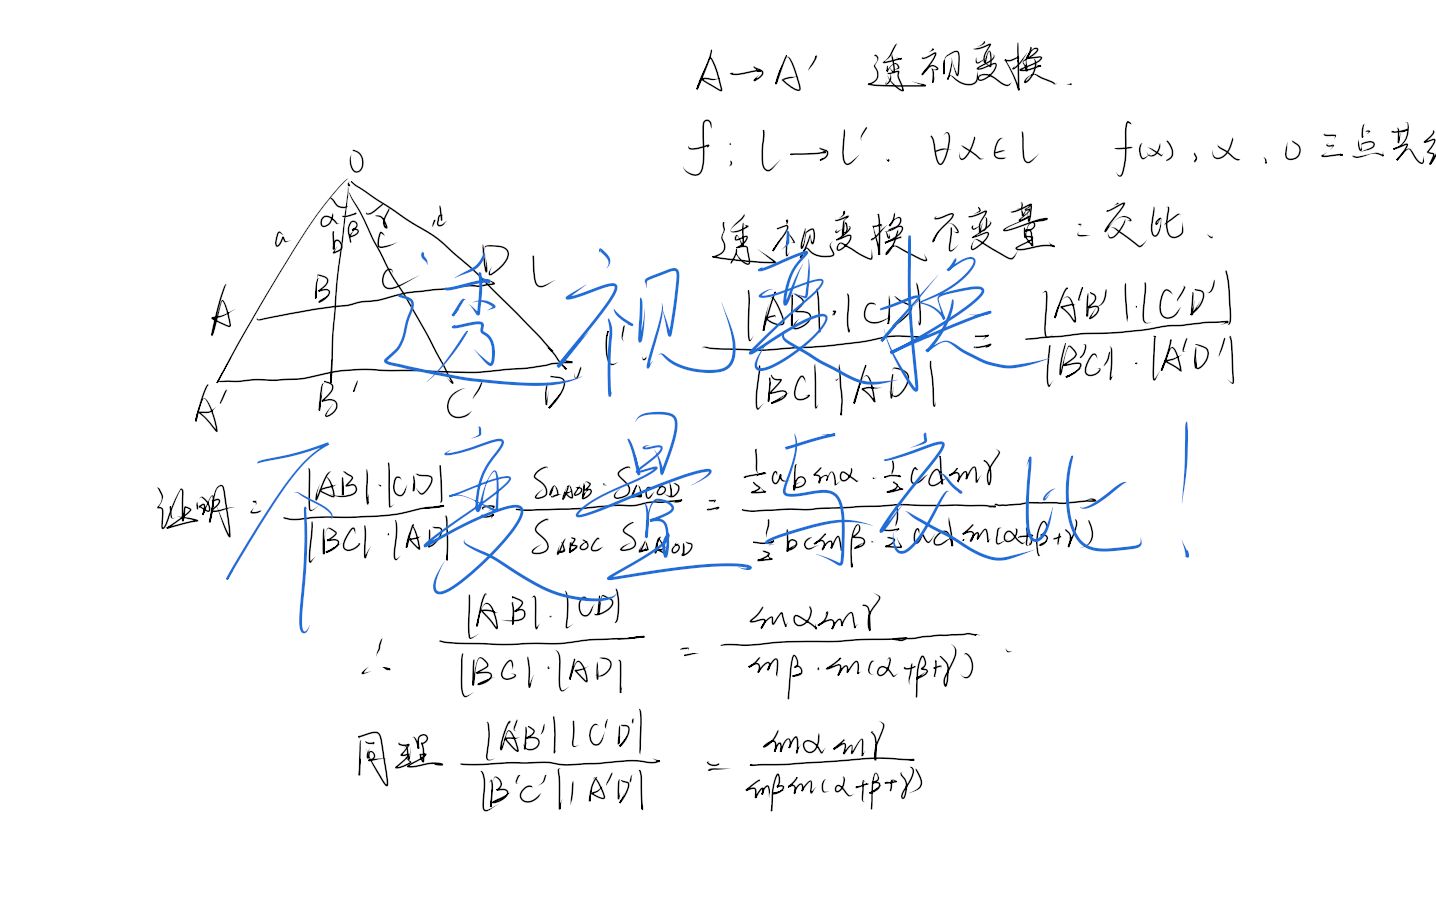 A→A′ 透视变换.
f: l→l′. ∀x∈l f(x), x, O 三点共
透视变换不变量：交比.
|AB|·|CD| / |BC|·|AD| = |A′B′|·|C′D′| / |B′C|·|A′D′|
O
α β γ
a b c d
A B C D l
A′ B′ C′ D′ l′
透视变换
不变量与交比!
证明： |AB|·|CD| / |BC|·|AD| = S△AOB·S△COD / S△BOC S△AOD = ½ab sinα·½cd sinγ / ½bc sinβ·½ad sin(α+β+γ)
∴ |AB|·|CD| / |BC|·|AD| = sinα sinγ / sinβ·sin(α+β+γ).
同理 |A′B′||C′D′| / |B′C′||A′D′| = sinα sinγ / sinβ sin(α+β+γ)